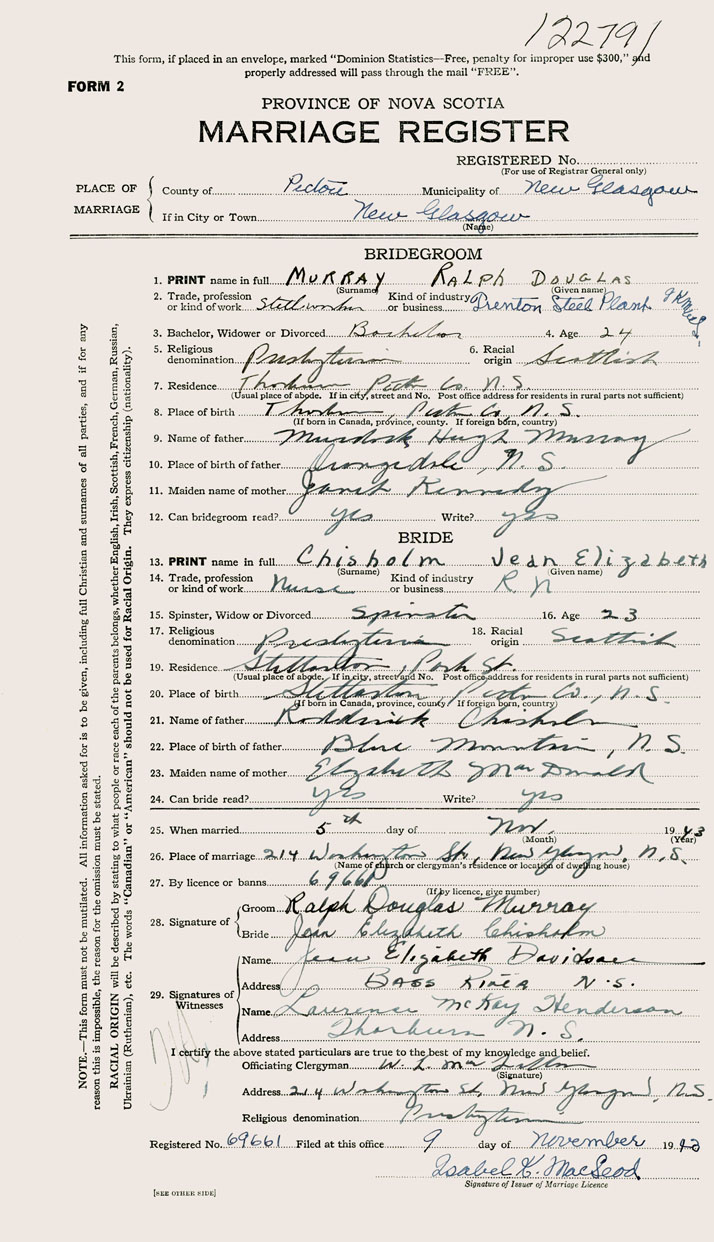 122791
This form, if placed in an envelope, marked "Dominion Statistics—Free, penalty for improper use $300," and
properly addressed will pass through the mail "FREE".
FORM 2
PROVINCE OF NOVA SCOTIA
MARRIAGE REGISTER
REGISTERED No.
(For use of Registrar General only)
PLACE OF MARRIAGE
County of Pictou Municipality of New Glasgow
If in City or Town New Glasgow
(Name)
BRIDEGROOM
1. PRINT name in full MURRAY RALPH DOUGLAS
(Surname) (Given name)
2. Trade, profession or kind of work Steelworker Kind of industry or business Trenton Steel Plant
3. Bachelor, Widower or Divorced Bachelor 4. Age 24
5. Religious denomination Presbyterian 6. Racial origin Scottish
7. Residence Thorburn, Pictou Co. N.S.
(Usual place of abode. If in city, street and No. Post office address for residents in rural parts not sufficient)
8. Place of birth Thorburn, Pictou Co, N.S.
(If born in Canada, province, county. If foreign born, country)
9. Name of father Murdock Hugh Murray
10. Place of birth of father Orangedale, N.S.
11. Maiden name of mother Janet Kennedy
12. Can bridegroom read? yes Write? yes
BRIDE
13. PRINT name in full Chisholm Jean Elizabeth
(Surname) (Given name)
14. Trade, profession or kind of work Nurse Kind of industry or business R N
15. Spinster, Widow or Divorced Spinster 16. Age 23
17. Religious denomination Presbyterian 18. Racial origin Scottish
19. Residence Stellarton, Park St.
(Usual place of abode. If in city, street and No. Post office address for residents in rural parts not sufficient)
20. Place of birth Stellarton, Pictou Co., N.S.
(If born in Canada, province, county. If foreign born, country)
21. Name of father Rodderick Chisholm
22. Place of birth of father Blue Mountain, N.S.
23. Maiden name of mother Elizabeth MacDonald
24. Can bride read? yes Write? yes
25. When married 5th day of Nov. 1943
(Month) (Year)
26. Place of marriage 214 Washington St., New Glasgow, N.S.
(Name of church or clergyman's residence or location of dwelling house)
27. By licence or banns 69661
(If by licence, give number)
28. Signature of
Groom Ralph Douglas Murray
Bride Jean Elizabeth Chisholm
29. Signatures of Witnesses
Name Jean Elizabeth Davidson
Address Bass River N.S.
Name Laurence McKay Henderson
Address Thorburn N.S.
I certify the above stated particulars are true to the best of my knowledge and belief.
Officiating Clergyman W. L.
(Signature)
Address 214 Washington St, New Glasgow, N.S.
Religious denomination Presbyterian
Registered No. 69661 Filed at this office 9 day of November 1943
Isabel K. MacLeod
Signature of Issuer of Marriage Licence
[SEE OTHER SIDE]
NOTE.—This form must not be mutilated. All information asked for is to be given, including full Christian and surnames of all parties, and if for any
reason this is impossible, the reason for the omission must be stated.
RACIAL ORIGIN will be described by stating to what people or race each of the parents belongs, whether English, Irish, Scottish, French, German, Russian,
Ukrainian (Ruthenian), etc. The words "Canadian" or "American" should not be used for Racial Origin. They express citizenship (nationality).